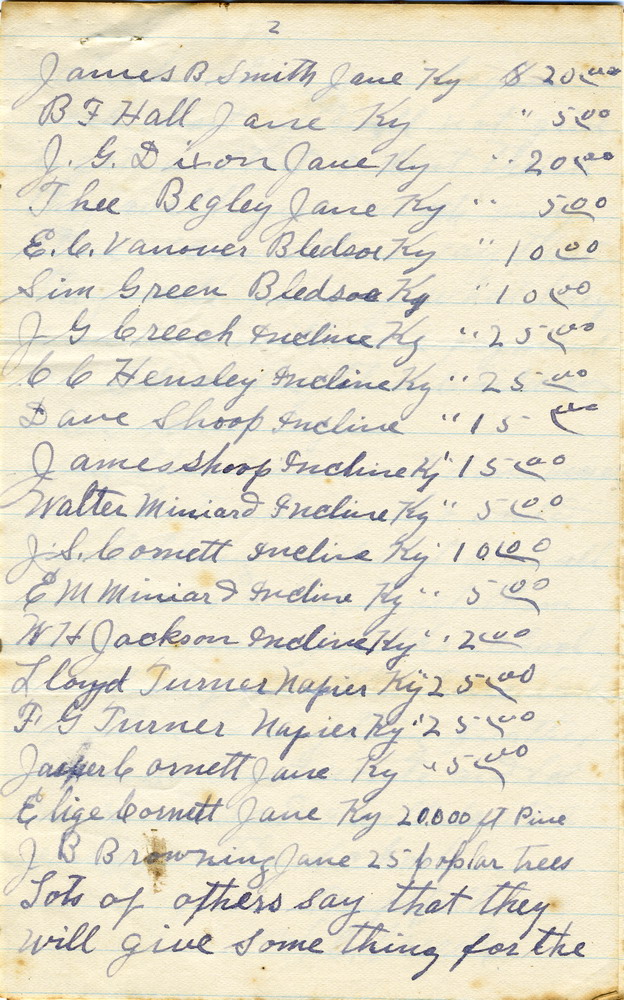 2
James B Smith Jane Ky $ 20.00
B F Hall Jane Ky " 5.00
J. G. Dixon Jane Ky " 20.00
Thee Begley Jane Ky " 5.00
E. C. Vanover Bledsoe Ky " 10.00
Sim Green Bledsoe Ky " 10.00
J G Creech Incline Ky " 25.00
C C Hensley Incline Ky " 25.00
Dave Shoop Incline " 15.00
James Shoop Incline Ky " 15.00
Walter Miniard Incline Ky " 5.00
J. S. Cornett Incline Ky 10.00
E M Miniard Incline Ky " 5.00
W H Jackson Incline Ky " 2.00
Lloyd Turner Napier Ky " 25.00
F. G Turner Napier Ky " 25.00
Jasper Cornett Jane Ky " 5.00
Elige Cornett Jane Ky 20.000 ft Pine
J B Browning Jane 25 poplar trees
Lots of others say that they
will give some thing for the